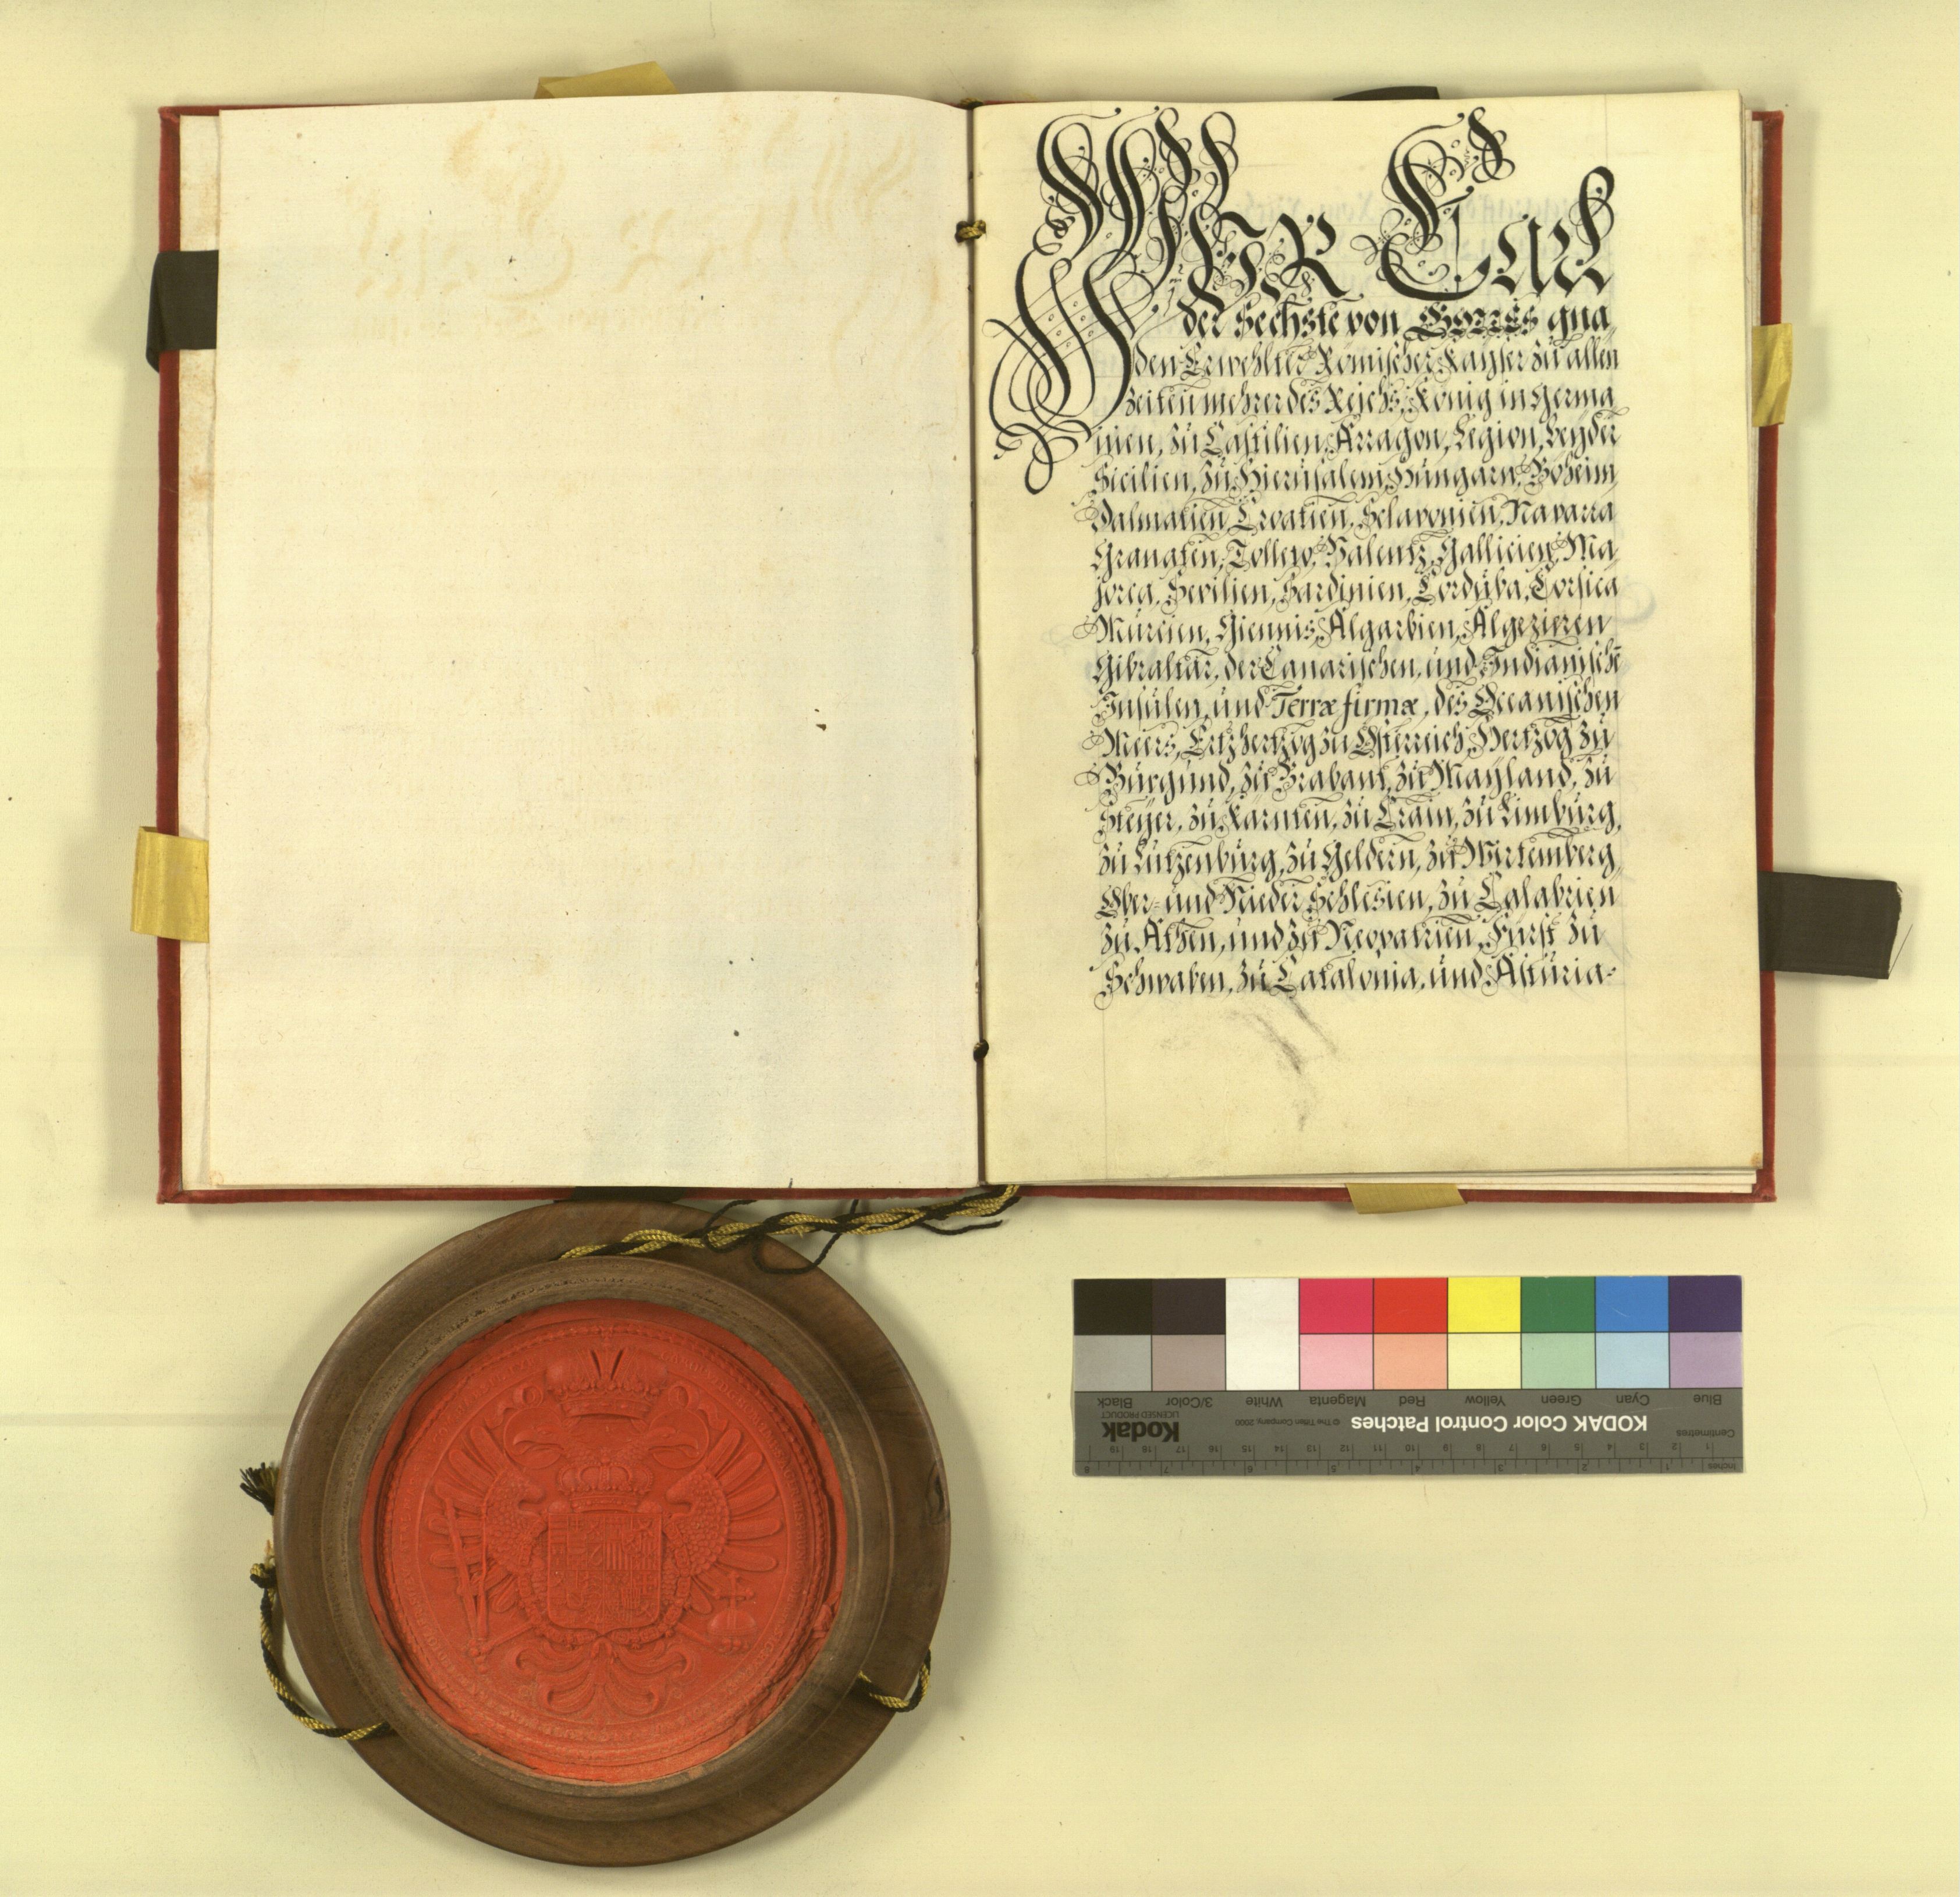 WIR Carl
der Sechste von GOTTES gna,
den Erwehlter Römischer Kayser zu allen
zeiten mehrer des Reichs, König in Germa,
nien, zu Castilien, Arragon, Legion, beyder
Sicilien, zu Hierusalem, Hungarn, Böheim,
Dalmatien, Croatien, Sclavonien, Navarra
Granaten, Tolleto, Valentz, Gallicien, Ma,
jorca, Sevilien, Sardinien, Corduba, Corsica
Murcien, Giennis, Algarbien, Algezieren
Gibraltar, der Canarischen, und Indianischē
Insulen, und Terræ firmæ, des Oceanischen
Meers, Ertzhertzog zu Österreich, Hertzog zu
Burgund, zu Brabant, zu Mayland, zu
Steyer, zu Kärnten, zu Crain, zu Limburg,
zu Lutzenburg, zu Geldern, zu Würtemberg,
Ober- und Nieder Schlesien, zu Calabrien
zu Athen, und zu Neopatrien, Fürst zu
Schwaben, zu Catalonia, und Asturia-
Inches 1 2 3 4 5 6 7 8
Centimetres 1 2 3 4 5 6 7 8 9 10 11 12 13 14 15 16 17 18 19
KODAK Color Control Patches © The Tiffen Company, 2000 Kodak
LICENSED PRODUCT
Blue Cyan Green Yellow Red Magenta White 3/Color Black